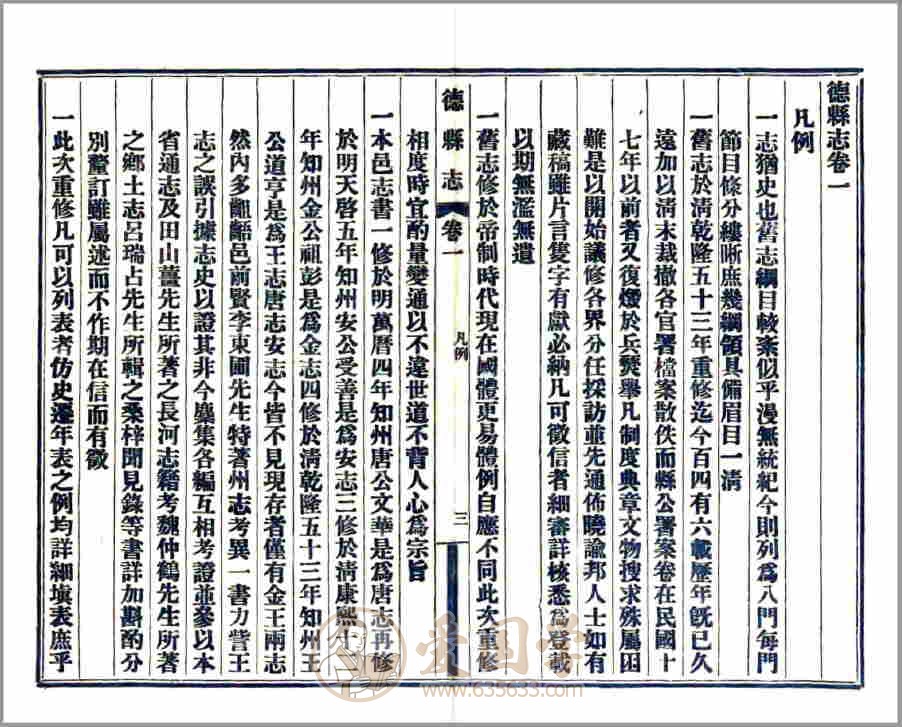 德縣志卷一
凡例
一志猶史也舊志綱目較紊似乎漫無統紀今則列為八門每門
節目條分縷晰庶幾綱領具備眉目一清
一舊志於清乾隆五十三年重修迄今百四有六載歷年旣已久
遠加以清末裁撤各官署檔案散佚而縣公署案卷在民國十
七年以前者又復燬於兵燹舉凡制度典章文物搜求殊屬困
難是以開始議修各界分任採訪並先通佈曉諭邦人士如有
藏稿雖片言隻字有獻必納凡可徵信者細審詳核悉為登載
以期無濫無遺
一舊志修於帝制時代現在國體更易體例自應不同此次重修
德縣志
卷一
凡例
三
相度時宜酌量變通以不違世道不背人心為宗旨
一本邑志書一修於明萬曆四年知州唐公文華是為唐志再修
於明天啓五年知州安公受善是為安志三修於清康熙十二
年知州金公祖彭是為金志四修於清乾隆五十三年知州王
公道亨是為王志唐志安志今皆不見現存者僅有金王兩志
然內多齟齬邑前賢李東圃先生特著州志考異一書力訾王
志之誤引據志史以證其非今麇集各編互相考證並參以本
省通志及田山薑先生所著之長河志籍考魏仲鶴先生所著
之鄉土志呂瑞占先生所輯之桑梓聞見錄等書詳加斟酌分
別釐訂雖屬述而不作期在信而有徵
一此次重修凡可以列表者仿史遷年表之例均詳細塡表庶乎
爱国学
www.635633.com